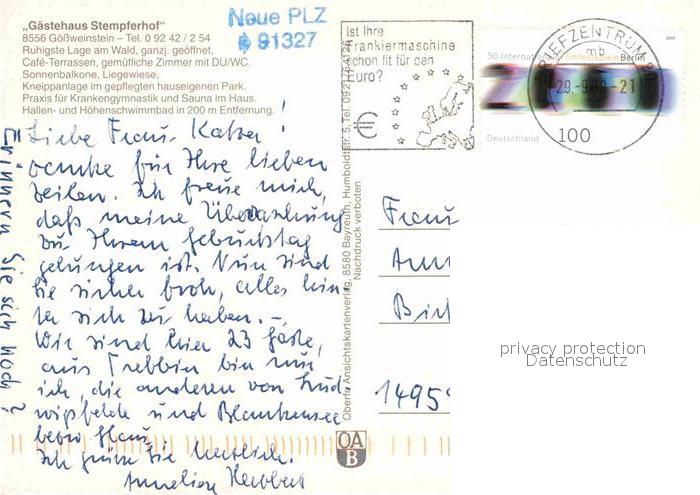 „Gästehaus Stempferhof“
8556 Gößweinstein – Tel. 0 92 42 / 2 54
Ruhigste Lage am Wald, ganzj. geöffnet,
Café-Terrassen, gemütliche Zimmer mit DU/WC.
Sonnenbalkone, Liegewiese,
Kneippanlage im gepflegten hauseigenen Park.
Praxis für Krankengymnastik und Sauna im Haus.
Hallen- und Höhenschwimmbad in 200 m Entfernung.
Neue PLZ
91327
Liebe Frau
danke für Ihre lieben
Zeilen. Ich freue mich,
daß meine Überraschung
zu Ihrem Geburtstag
gelungen ist. Nun sind
Sie sicher froh, alles hin
ter sich zu haben. –
Wir sind hier 23 Gäste,
aus Trebbin bin nur
ich, die anderen von Lud
wigsfelde und Blankensee
Ich grüße Sie herzlich.
Annelies
Erinnern Sie sich noch?
Oberfr. Ansichtskartenverlag, 8580 Bayreuth, Humboldtstr. 5, Tel. 0921/
Nachdruck verboten
OA
B
Ist Ihre
Frankiermaschine
schon fit für den
Euro?
€
50. Internationale Filmfestspiele Berlin
2000
Deutschland
100
BRIEFZENTRUM
mb
-21
Frau
1495
privacy protection
Datenschutz